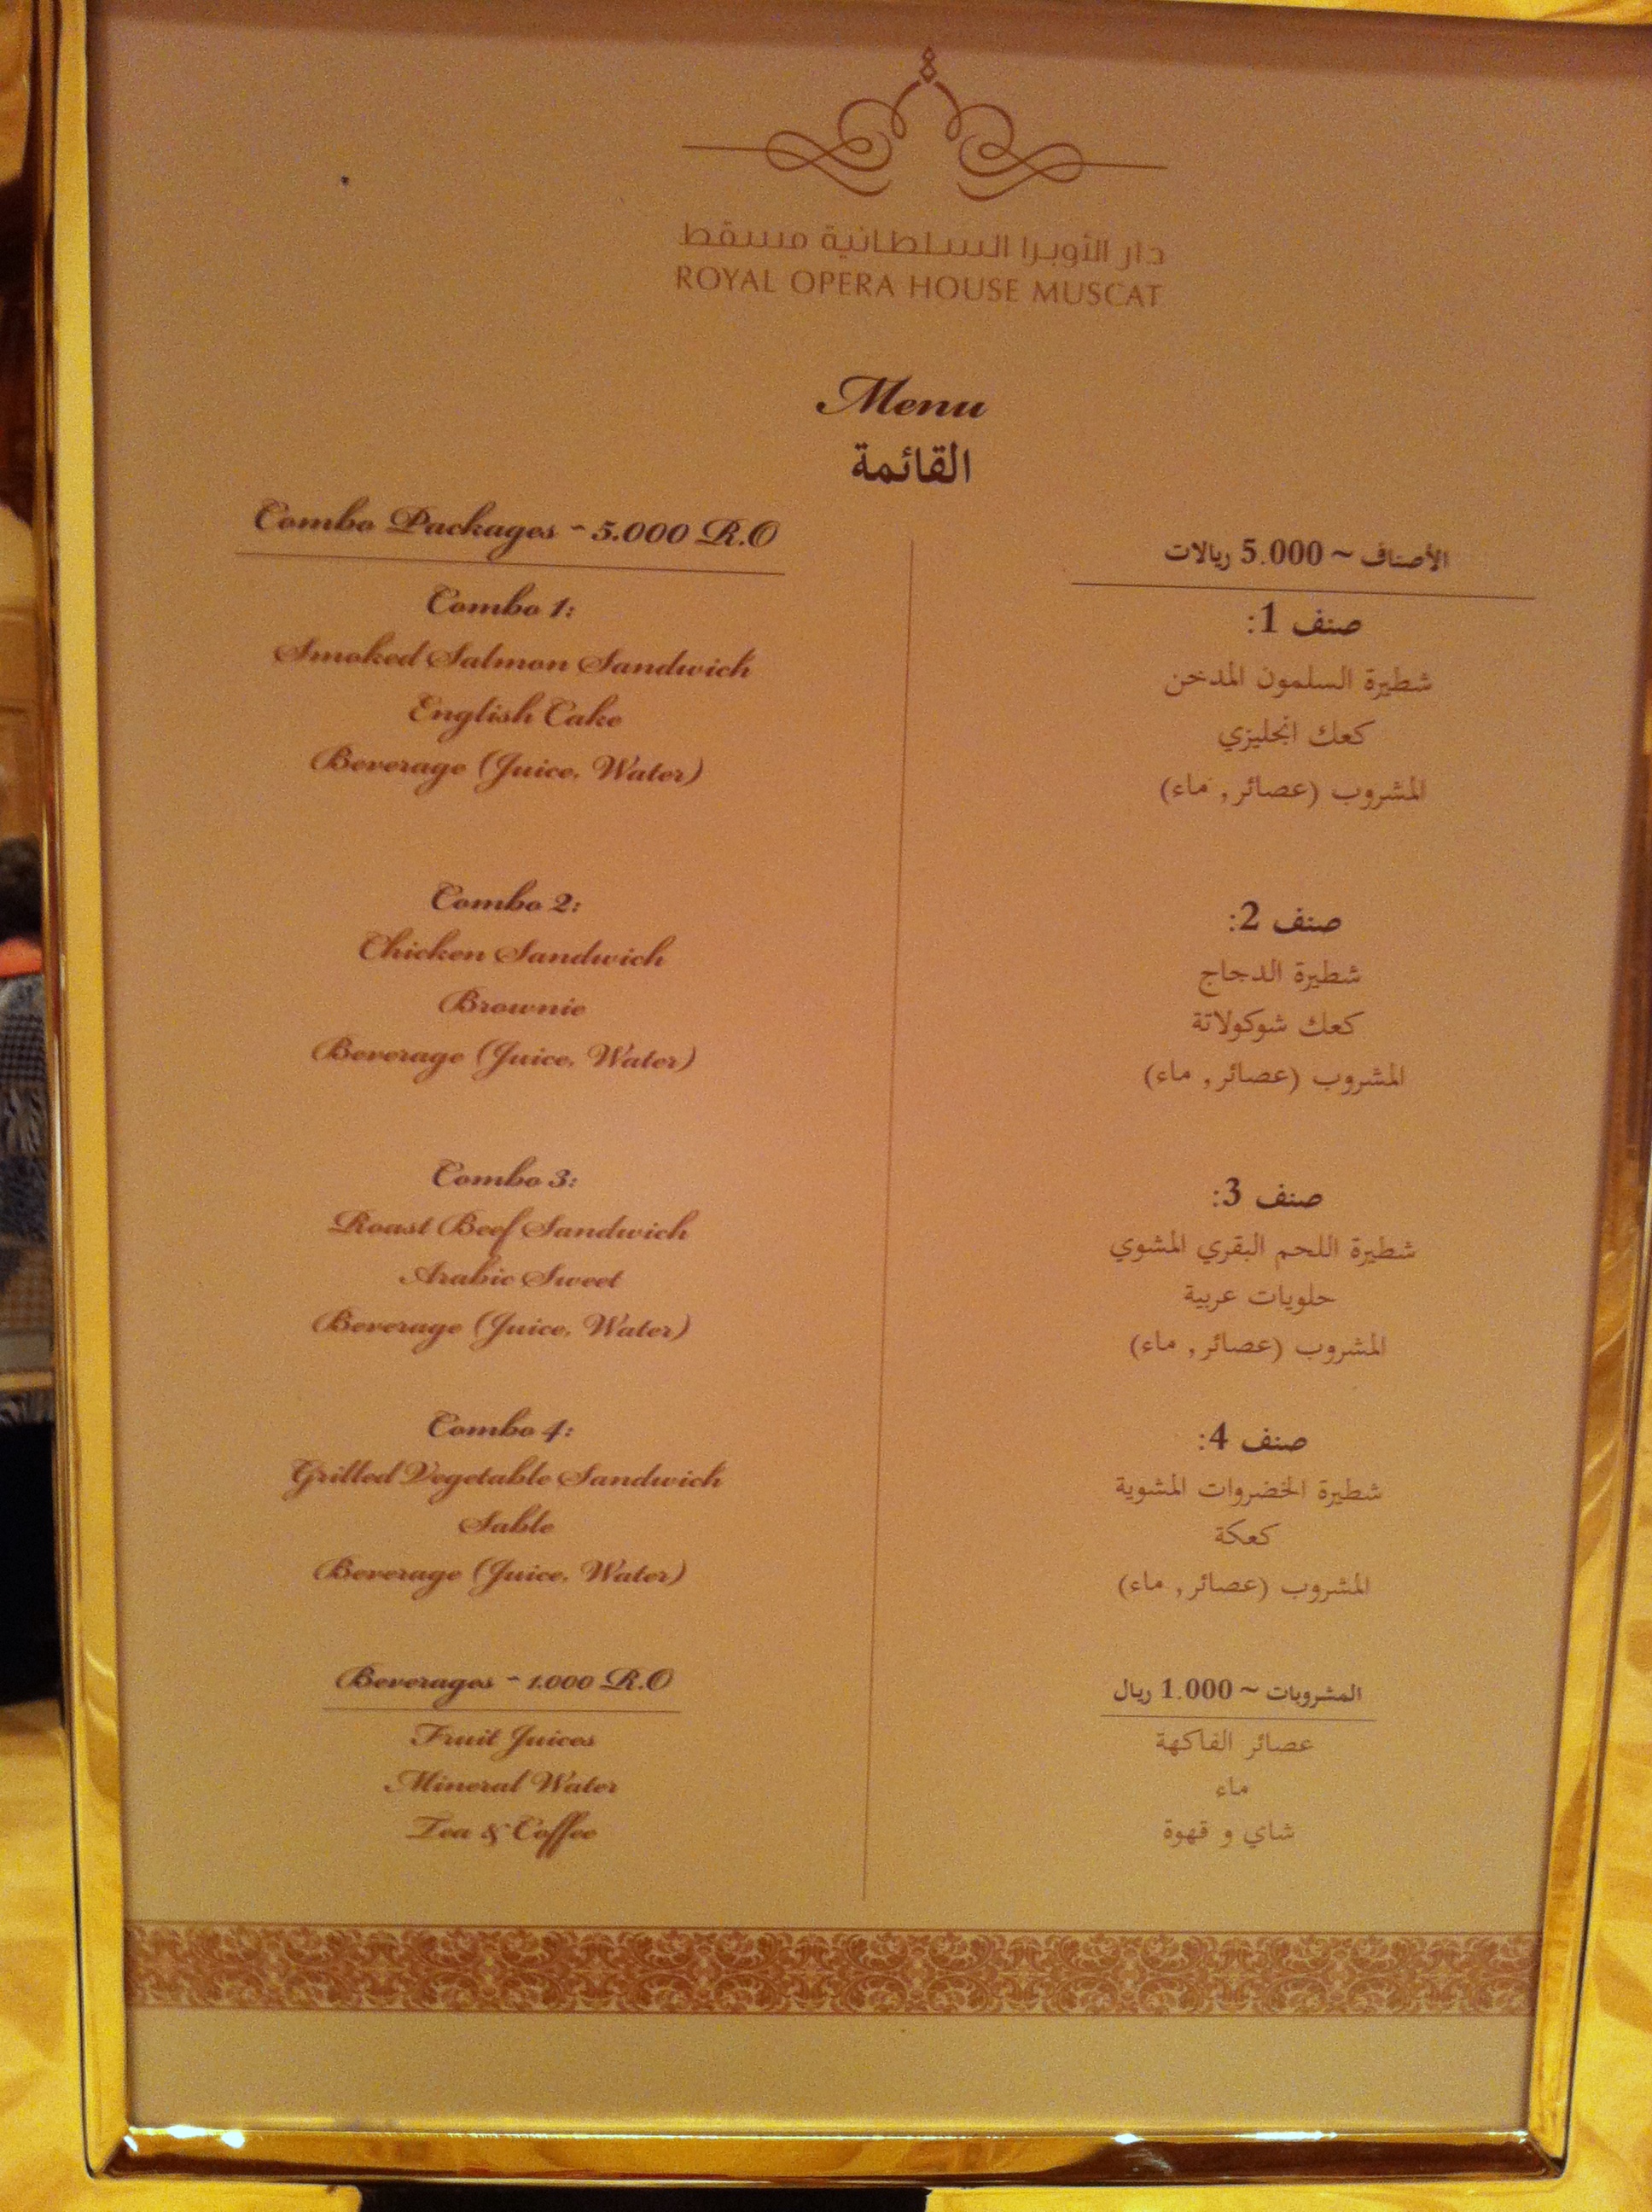 دار الأوبرا السلطانية مسقط
ROYAL OPERA HOUSE MUSCAT
Menu
القائمة
Combo Packages ~ 5.000 R.O
Combo 1:
Smoked Salmon Sandwich
English Cake
Beverage (Juice, Water)
Combo 2:
Chicken Sandwich
Brownie
Beverage (Juice, Water)
Combo 3:
Roast Beef Sandwich
Arabic Sweet
Beverage (Juice, Water)
Combo 4:
Grilled Vegetable Sandwich
Sable
Beverage (Juice, Water)
Beverages ~ 1.000 R.O
Fruit Juices
Mineral Water
Tea & Coffee
الأصناف ~ 5.000 ريالات
صنف 1:
شطيرة السلمون المدخن
كعك انجليزي
المشروب (عصائر, ماء)
صنف 2:
شطيرة الدجاج
كعك شوكولاتة
المشروب (عصائر, ماء)
صنف 3:
شطيرة اللحم البقري المشوي
حلويات عربية
المشروب (عصائر, ماء)
صنف 4:
شطيرة الخضروات المشوية
كعكة
المشروب (عصائر, ماء)
المشروبات ~ 1.000 ريال
عصائر الفاكهة
ماء
شاي و قهوة